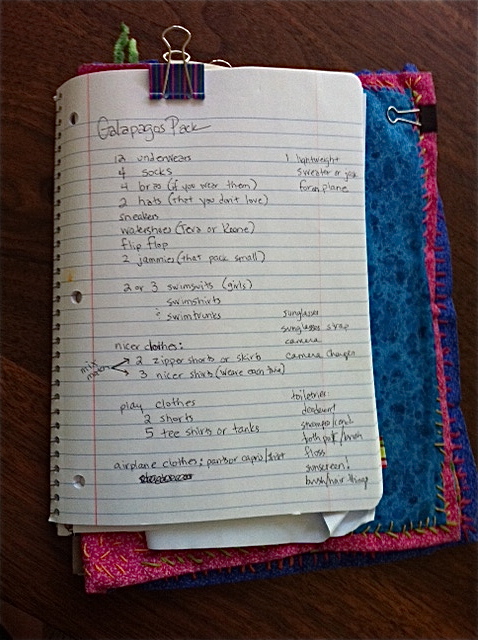 Galapagos Pack
12 underwears
4 socks
4 bras (if you wear them)
2 hats (that you don't love)
sneakers
watershoes (Teva or Keene)
flip flop
2 jammies (that pack small)
1 lightweight
sweater or
for on plane
2 or 3 swimsuits (girls)
swimshirts
swimtrunks
nicer clothes:
mix
match
2 zipper shorts or skirts
3 nicer shirts (weare each
play clothes
2 shorts
5 tee shirts or tanks
airplane clothes: pants or capris/shirt
sunglasses
sunglasses strap
camera
camera charger
toiletries:
deodorant
shampoo/cond.
toothpaste/brush
floss
sunscreen!
brush/hair things